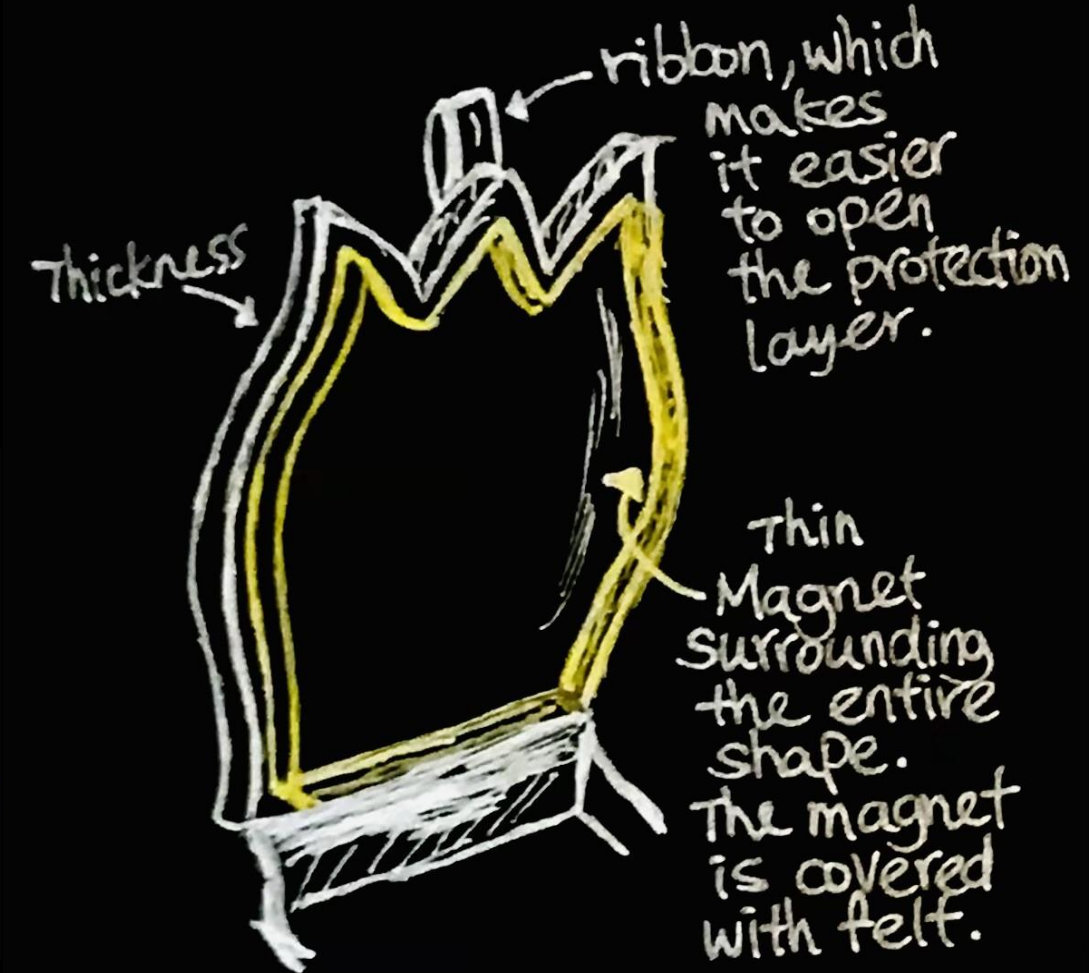 ribbon, which
makes
it easier
to open
the protection
layer.
Thickness
Thin
Magnet
surrounding
the entire
shape.
The magnet
is covered
with felt.